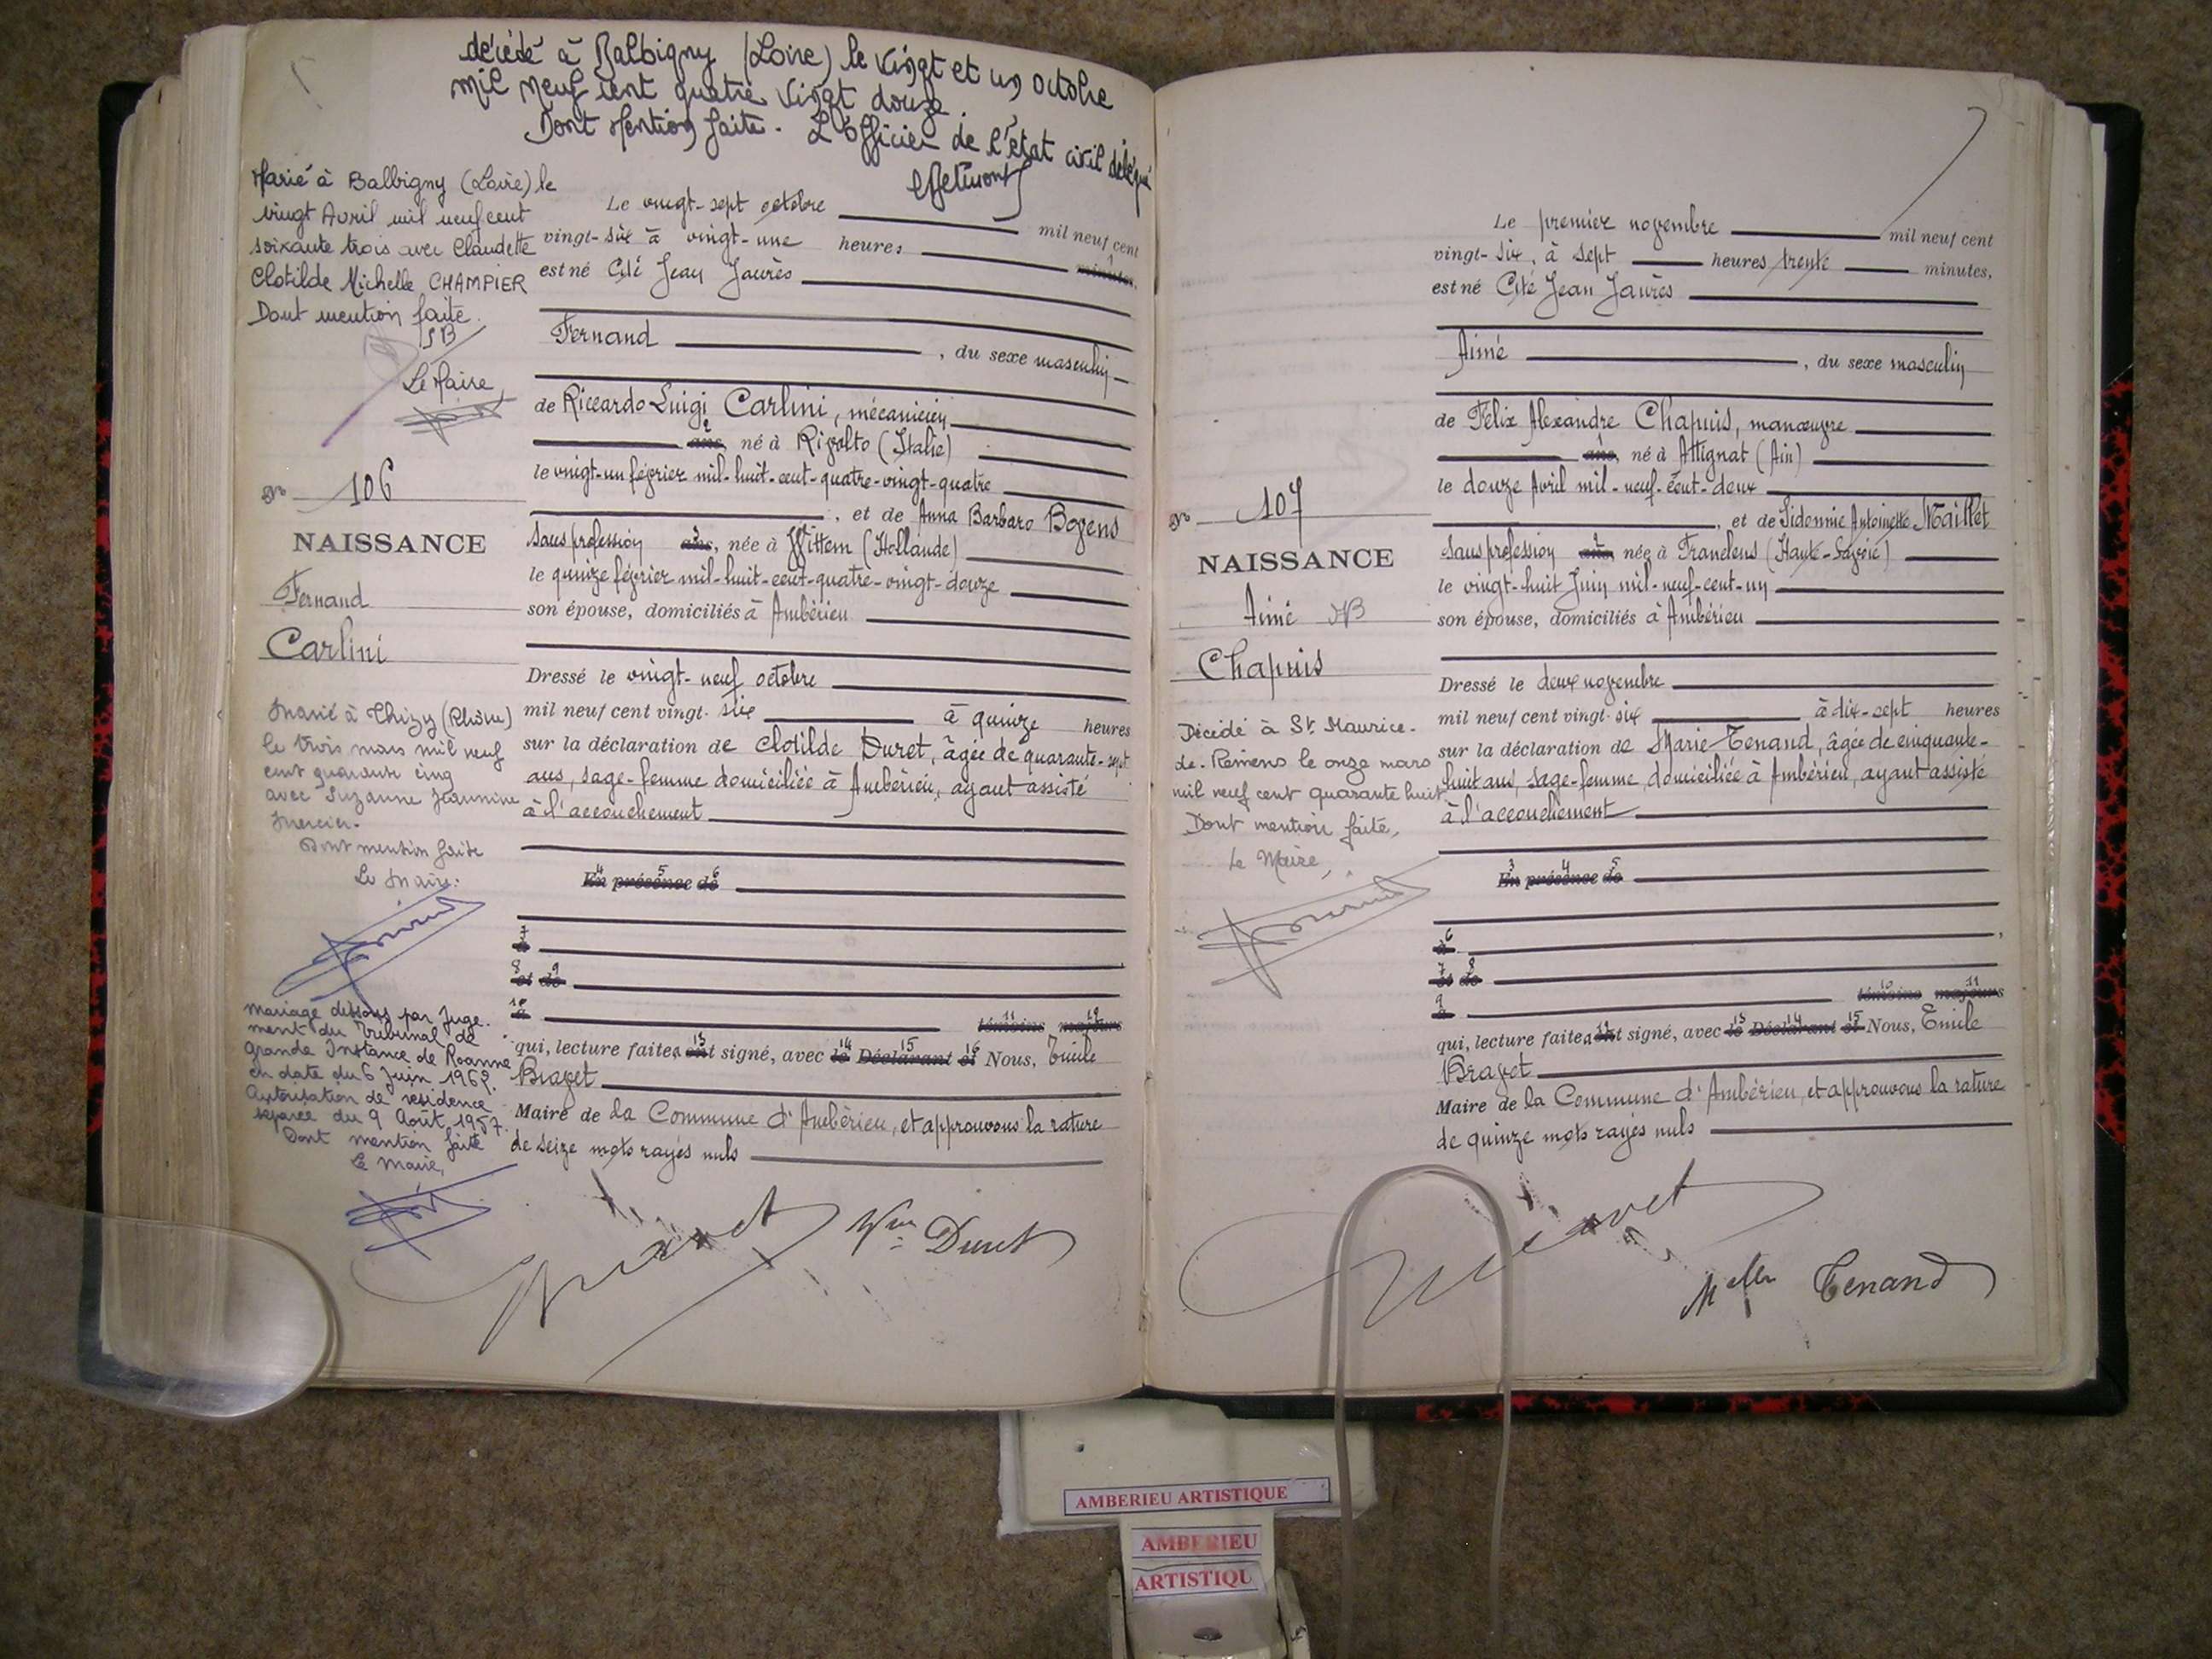 décédé à Balbigny (Loire) le vingt et un octobre
mil neuf cent quatre vingt douze.
Dont Mention faite. L'officier de l'état civil délégué
Marié à Balbigny (Loire) le
vingt Avril mil neuf cent
soixante trois avec Claudette
Clotilde Michelle CHAMPIER
Dont mention faite.
Le Maire,
N° 106
NAISSANCE
Fernand
Carlini
Marié à Thizy (Rhône)
le trois mars mil neuf
cent quarante cinq
avec Suzanne Jeannine
Mercier.
Dont mention faite
Le Maire:
Mariage dissous par Juge-
ment du Tribunal de
Grande Instance de Roanne
en date du 6 Juin 1962.
Autorisation de résidence
séparée du 9 Août 1957.
Dont mention faite
Le Maire,
Le vingt-sept octobre mil neuf cent
vingt-six à vingt-une heures minutes,
est né Cité Jean Jaurès
Fernand , du sexe masculin
de Riccardo Luigi Carlini, mécanicien
ans, né à Rivolto (Italie)
le vingt-un février mil-huit-cent-quatre-vingt-quatre
, et de Anna Barbara Bovens
Sans profession ans, née à Wittem (Hollande)
le quinze février mil-huit-cent-quatre-vingt-douze
son épouse, domiciliés à Ambérieu
Dressé le vingt-neuf octobre
mil neuf cent vingt-six à quinze heures
sur la déclaration de Clotilde Duret, âgée de quarante-sept
ans, sage-femme domiciliée à Ambérieu, ayant assisté
à l'accouchement
En présence de
à
et de
à témoins majeurs
qui, lecture faite a ont signé, avec le Déclarant et Nous, Emile
Bravet
Maire de la Commune d'Ambérieu, et approuvons la rature
de seize mots rayés nuls
Bravet Vve Duret
N° 107
NAISSANCE
Aimé
Chapuis
Décédé à St Maurice-
de-Rémens le onze mars
mil neuf cent quarante huit
Dont mention faite,
Le Maire,
Le premier novembre mil neuf cent
vingt-six, à sept heures trente minutes,
est né Cité Jean Jaurès
Aimé , du sexe masculin
de Félix Alexandre Chapuis, manœuvre
ans, né à Attignat (Ain)
le douze Avril mil-neuf-cent-deux
, et de Sidonnie Antoinette Maillet
Sans profession ans, née à Franclens (Haute-Savoie)
le vingt-huit Juin mil-neuf-cent-un
son épouse, domiciliés à Ambérieu
Dressé le deux novembre
mil neuf cent vingt-six à dix-sept heures
sur la déclaration de Marie Tenand, âgée de cinquante-
huit ans, sage-femme, domiciliée à Ambérieu, ayant assisté
à l'accouchement
En présence de
à
et de
à témoins majeurs
qui, lecture faite a ont signé, avec le Déclarant et Nous, Emile
Bravet
Maire de la Commune d'Ambérieu, et approuvons la rature
de quinze mots rayés nuls
Bravet
Melle Tenand
AMBERIEU ARTISTIQUE
AMBERIEU
ARTISTIQU